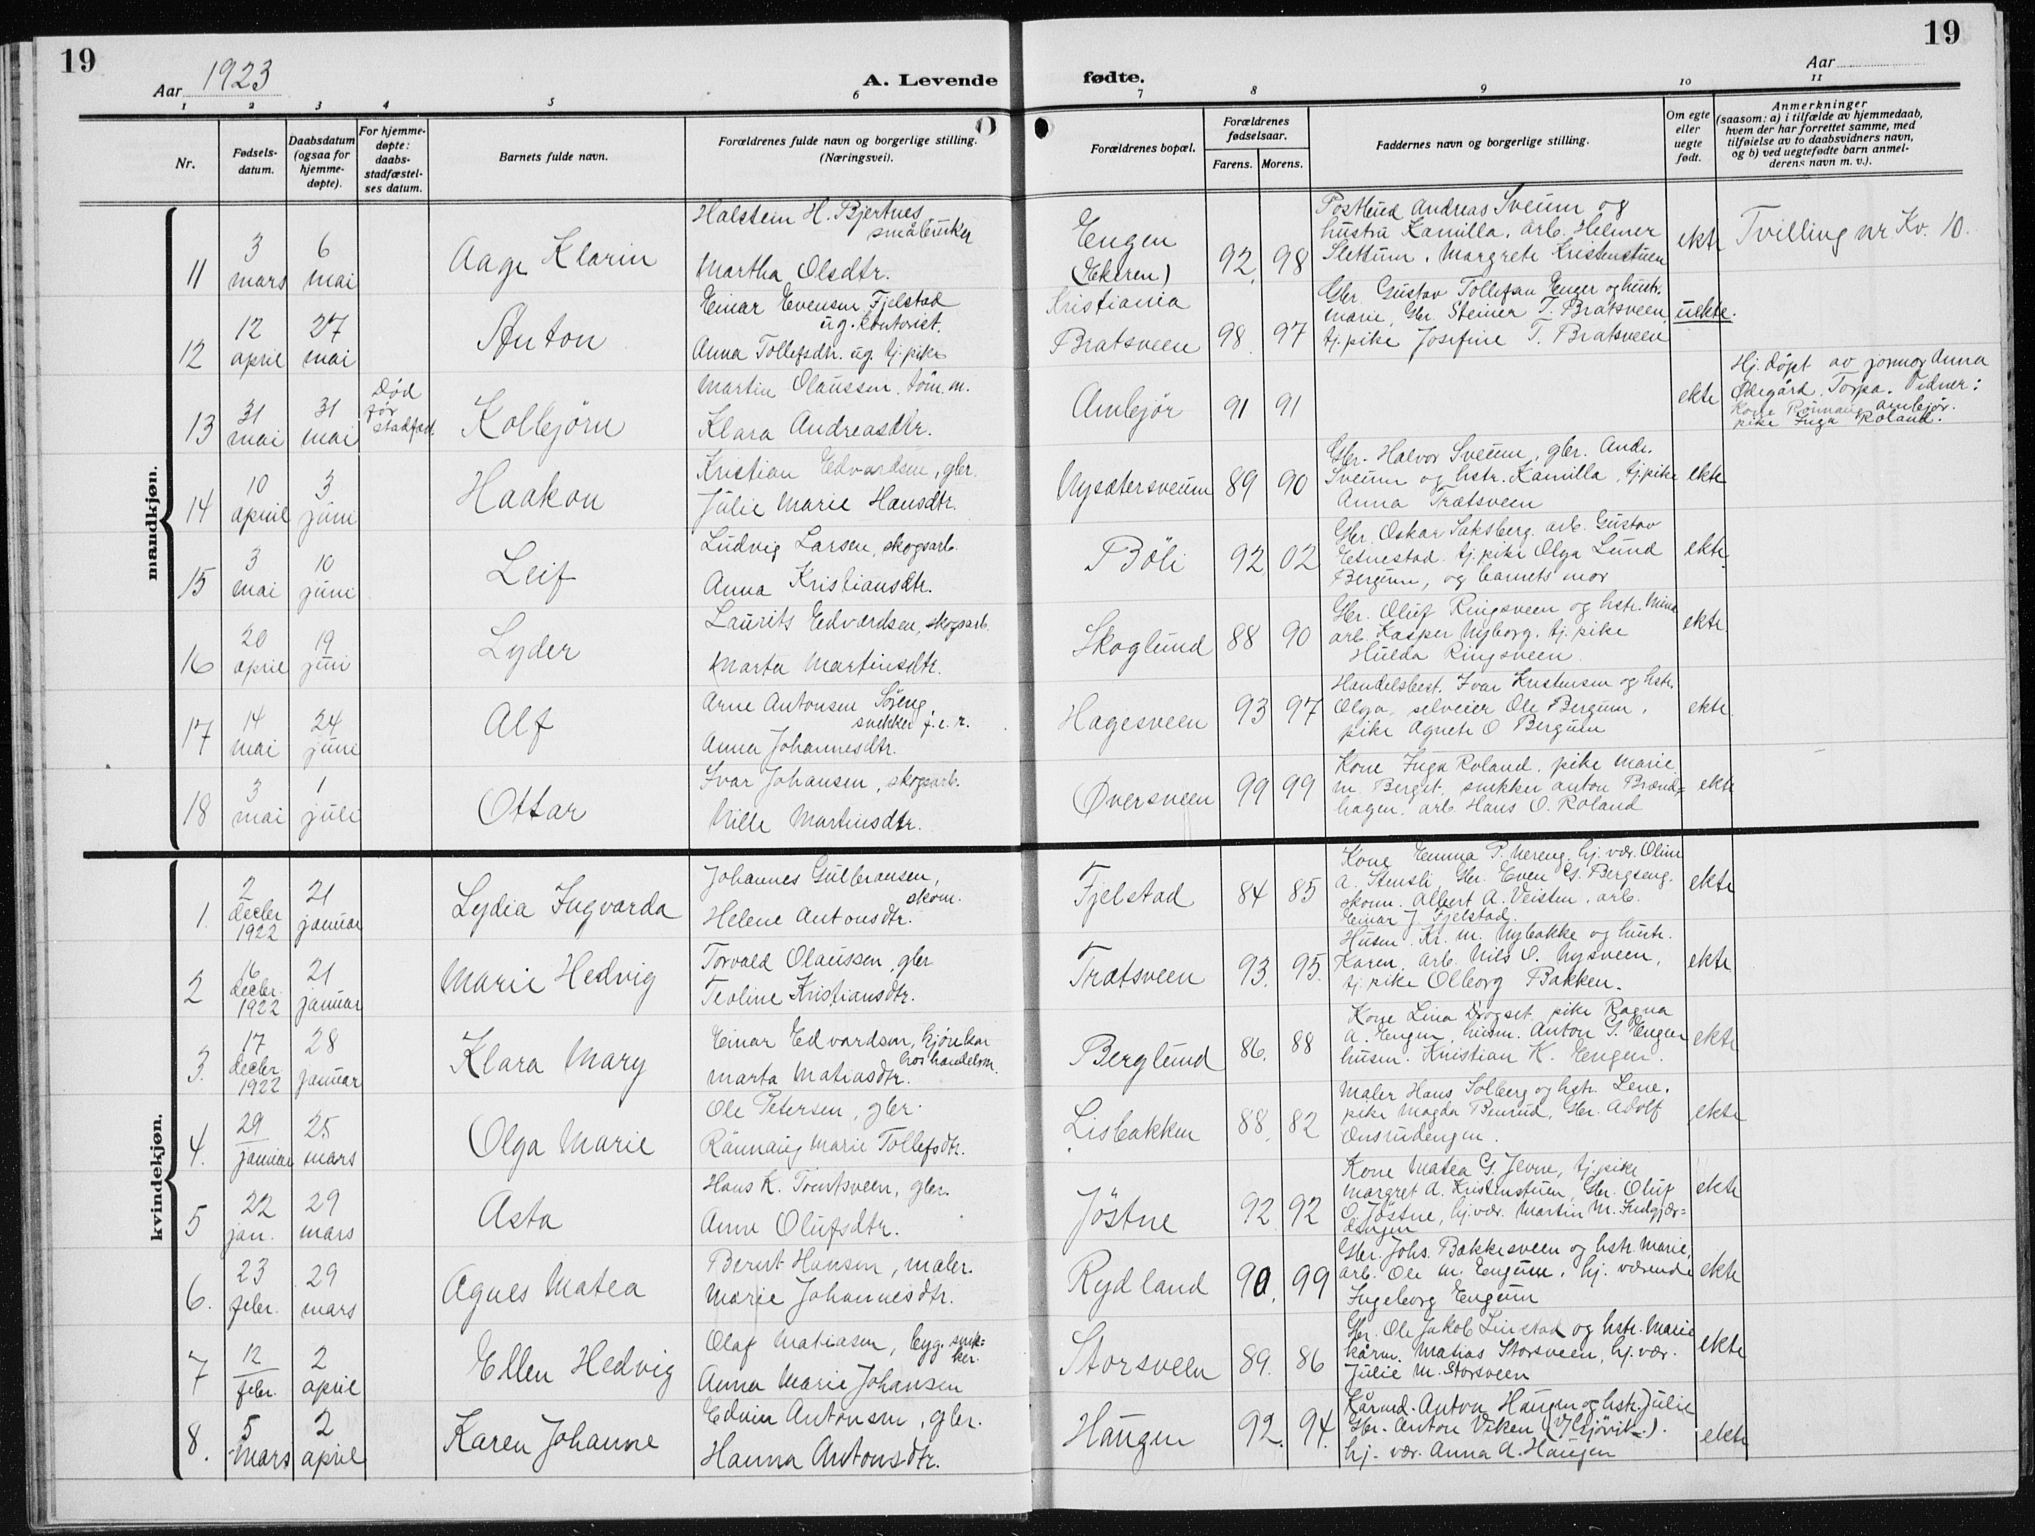 19
19
Aar 1923
A. Levende
fødte.
Aar
1 2 3 4 5 6 7 8 9 10 11
Nr.
Fødsels-
datum.
Daabsdatum
(ogsaa for
hjemme-
døpte).
For hjemme-
døpte:
daabs-
stadfæstel-
ses datum.
Barnets fulde navn.
Forældrenes fulde navn og borgerlige stilling.
(Næringsvei).
Forældrenes bopæl.
Forældrenes
fødselsaar.
Farens. Morens.
Faddernes navn og borgerlige stilling.
Om egte
eller
uegte
født.
Anmerkninger
(saasom: a) i tilfælde av hjemmedaab,
hvem der har forrettet samme, med
tilføielse av to daabsvidners navn,
og b) ved uegtefødte barn anmel-
derens navn m. v.).
mandkjøn.
11
3
mars
6
mai
Aage Klarin
Halstein H. Bjertnes
småbruker
Martha Olsdtr.
Engen
(Ekeren)
92. 98
Postbud Andreas Sveum og
hustru Kamilla, arb. Helmer
Slettum, Margrete Kristenstuen
ekte
Tvilling nr Kv. 10.
12
12
april
27
mai
Anton
Einar Evensen Fjelstad
ug. kontorist.
Anna Tollefsdtr. ug. tj.pike
Kristiania
Bratsveen
98. 97
Gbr. Gustav Tollefsen Enger og hustr.
Marie, Gbr. Steiner T. Bratsveen,
tj.pike Josefine T. Bratsveen
uekte.
13
31
mai
31
mai
Død
før
stadfæst.
Kolbjørn
Martin Olaussen, tøm.m.
Klara Andreasdtr.
Amlejør
91 91
ekte
Hj. døpt av jormor Anna
Ødegård, Torpa. Vidner:
Kone Rønnaug Amlejør.
pike Inga Roland.
14
10
april
3
juni
Haakon
Kristian Edvardsen, gbr.
Julie Marie Hansdtr.
Nysætersveum
89 90
Gbr. Halvor Sveum, gbr. Andr.
Sveum og hstr. Kamilla, tj.pike
Anna Trætsveen
ekte
15
3
mai
10
juni
Leif
Ludvig Larsen, skogsarb.
Anna Kristiansdtr.
Bøli
92 02
Gbr. Oskar Saksberg, arb. Gustav
Etnestad, tj.pike Olga Lund
Bergum, og barnets mor
ekte.
16
20
april
19
juni
Lyder
Laurits Edvardsen, skogsarb.
Marta Martinsdtr.
Skoglund
88 90
Gbr. Oluf Ringsveen og hstr. Mina
arb. Kasper Nyborg, tj.pike
Hulda Ringsveen.
ekte.
17
14
mai
24
juni
Alf
Arne Antonsen Søreng,
snekker f.e.r.
Anna Johannesdtr.
Hagesveen
93 97
Handelsbest. Ivar Kristensen og hstr.
Olga, selveier Ole Bergum,
pike Agnete O Bergum
ekte.
18
3
mai
1
juli
Ottar
Ivar Johansen, skogsarb.
Nille Martinsdtr.
Øversveen
99 99
Kone Inga Roland, pike Marie
M. Berget, snekker Anton Brænd=
hagen, arb. Hans O. Roland
ekte
kvindekjøn.
1.
2
decbr
1922
21
januar
Lydia Ingvarda
Johannes Gulbransen,
skom.
Helene Antonsdtr.
Fjelstad
84 85
Kone Emma P. Nereng, hj.vær. Oline
A. Stensli, Gbr. Even G. Bergseng,
skom. Albert A. Veisten, arb.
Einar J. Fjelstad.
ekte
2
16
decbr.
1922
21
januar
Marie Hedvig
Torvald Olaussen, gbr
Teoline Kristiansdtr.
Trætsveen
93. 95.
Husm. Kr. M. Nybakke og hustr.
Karen, arb. Nils O. Nysveen,
tj.pike Olborg Bakken.
ekte
3.
17
decbr
1922
28
januar
Klara Mary
Einar Edvardsen, kjørekar
hos handelsm.
Marta Matiasdtr.
Berglund
86. 88
Kone Lina Drogset, pike Ragna
A. Engen, husm. Anton G. Engen
husm. Kristian K. Engen.
ekte
4.
29
januar
25
mars
Olga Marie
Ole Petersen, gbr.
Rønnaug Marie Tollefsdtr.
Lisbakken
88. 82
Maler Hans Solberg og hstr. Lene,
pike Magda Benrud, Gbr. Adolf
Onsrudengen.
ekte
5
22
jan.
29
mars
Asta
Hans K. Tomtsveen, gbr.
Anne Olufsdtr.
Jøstne
92 92
Kone Matea G. Jevne, tj.pike
Margret A. Kristenstuen, Gbr. Oluf
O. Jøstne, hj.vær. Martin M.
ekte
6.
23
febr.
29
mars
Agnes Matea
Bernt Hansen, maler
Marie Johannesdtr.
Rydland
90. 99
Gbr. Johs. Bakkesveen og hstr. Marie,
arb. Ole M. Engum, hj. værende
Ingeborg Engum
ekte
7
12
febr.
2
april
Ellen Hedvig
Olaf Matiasen, byg. snek=
ker.
Anna Marie Johansen
Storsveen
89. 86
Gbr. Ole Jakob Linstad og hstr. Marie
kårm. Matias Storsveen, hj.vær.
Julie M. Storsveen
ekte
8.
5
mars
2
april
Karen Johanne
Edvin Antonsen, gbr.
Hanna Antonsdtr.
Haugen
92. 94.
Kårmd. Anton Haugen og hstr. Julie
Gbr. Anton Viken (V/Gjøvik).
hj. vær. Anna A. Haugen
ekte